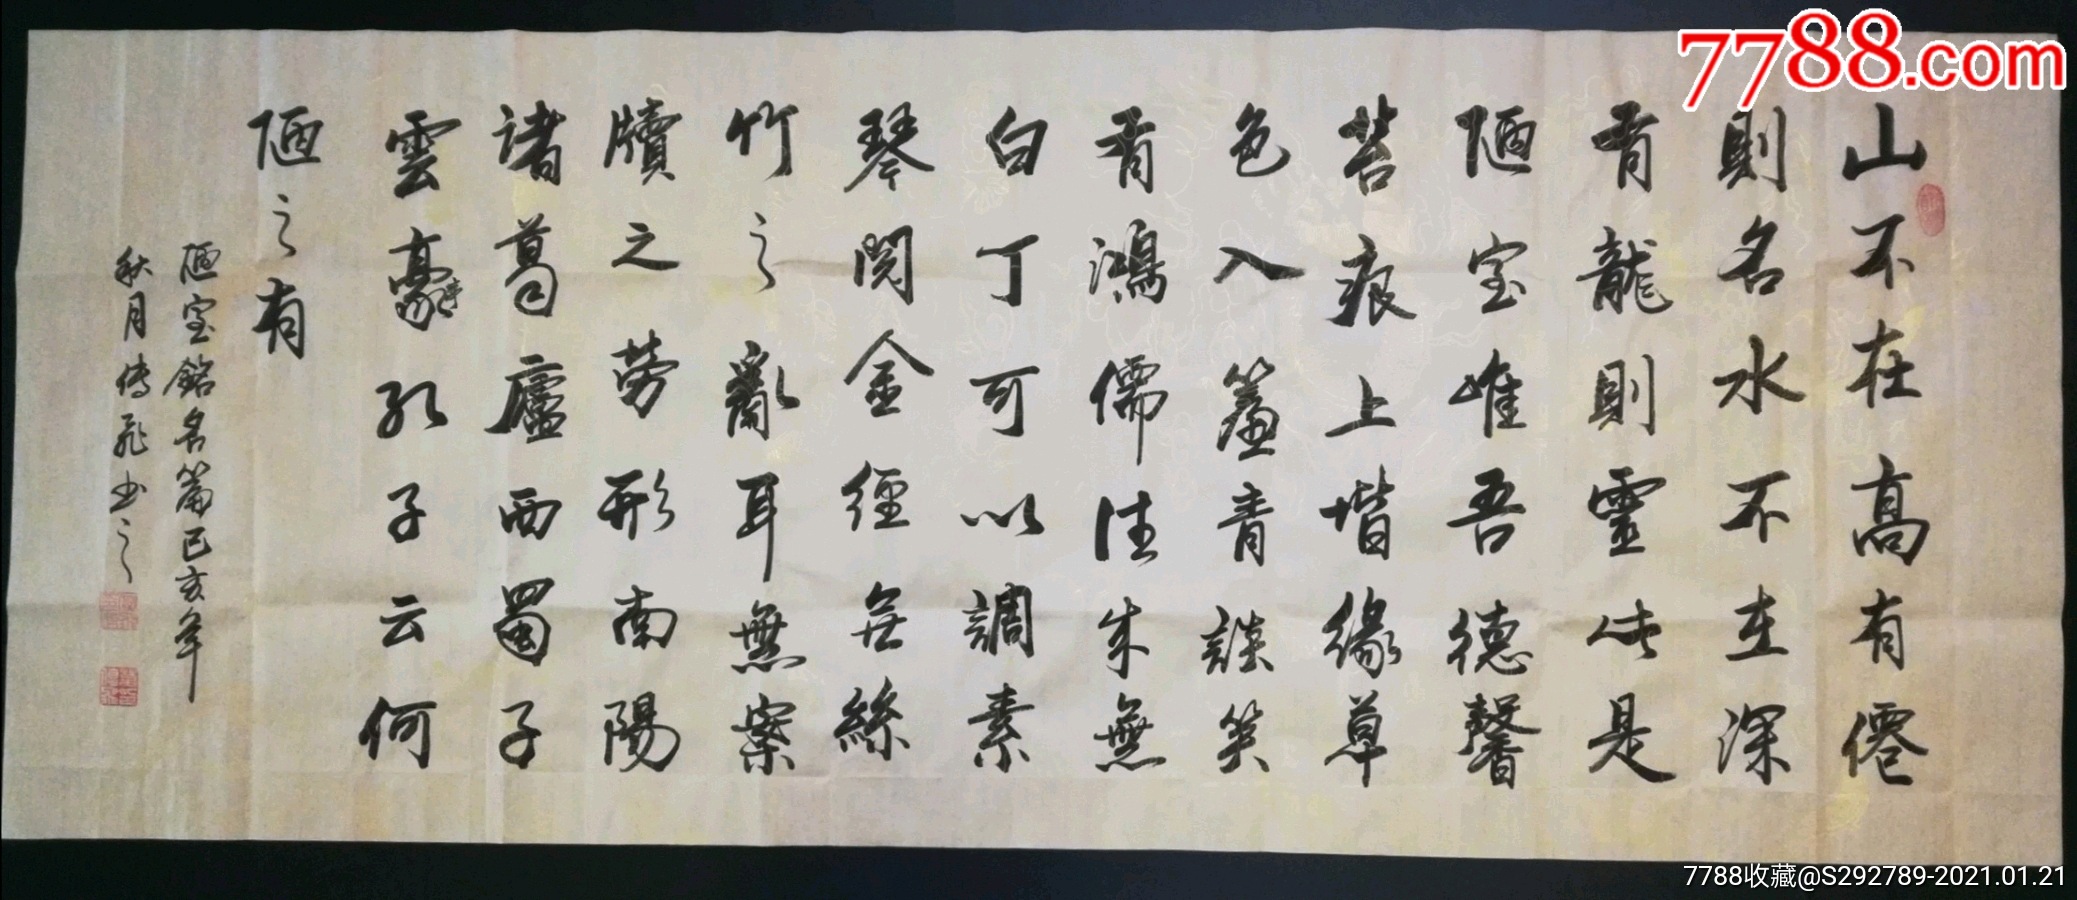 山不在高有僊
則名水不在深
有龍則靈此是
陋室唯吾德馨
苔痕上堦緣草
色入簾青談笑
有鴻儒往来無
白丁可以調素
琴閱金經無絲
竹之亂耳無案
牘之勞形南陽
諸葛廬西蜀子
雲豪亭孔子云何
陋之有
陋室銘名篇己亥年
秋月傳飛书之
7788.com
7788收藏@S292789-2021.01.21